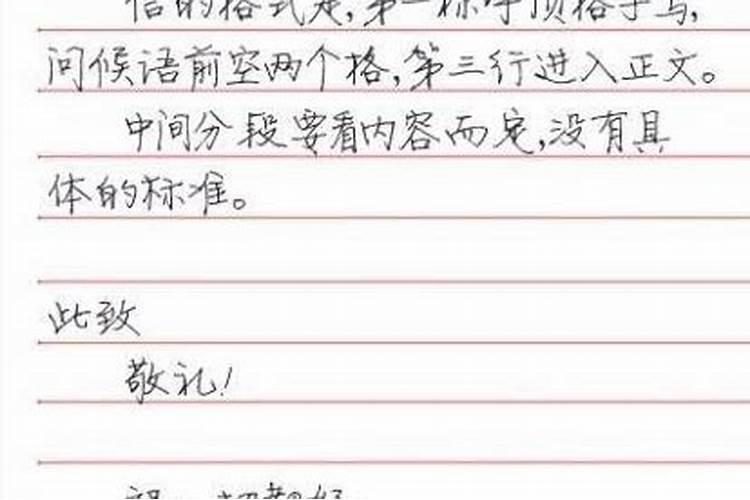 信的格式是,第一称呼顶格子写,
问候语前空两个格,第三行进入正文。
中间分段要看内容而定,没有具
体的标准。
此致
敬礼!